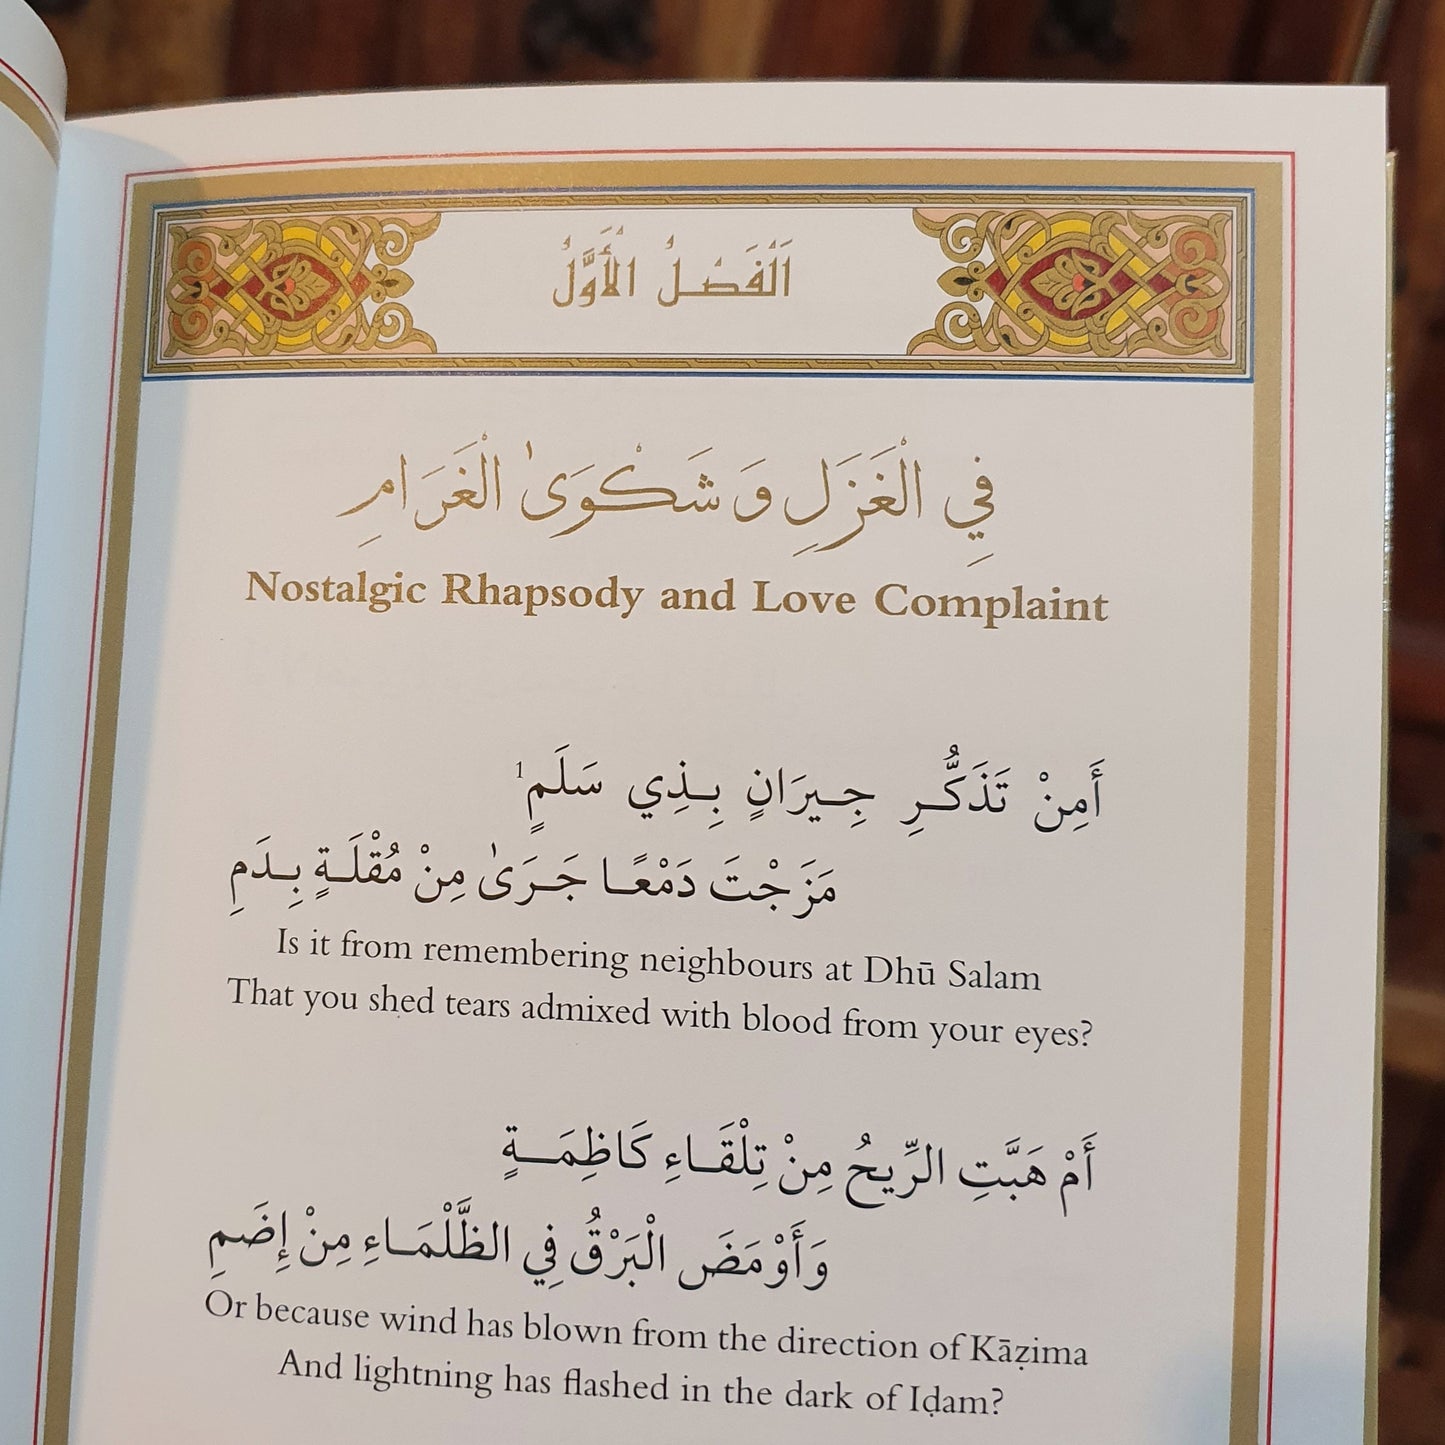 اَلْفَصْلُ الْأَوَّلُ
فِي الْغَزَلِ وَشَكْوَىٰ الْغَرَامِ
Nostalgic Rhapsody and Love Complaint
أَمِنْ تَذَكُّرِ جِيرَانٍ بِذِي سَلَمٍ¹
مَزَجْتَ دَمْعًا جَرَىٰ مِنْ مُقْلَةٍ بِدَمِ
Is it from remembering neighbours at Dhū Salam
That you shed tears admixed with blood from your eyes?
أَمْ هَبَّتِ الرِّيحُ مِنْ تِلْقَاءِ كَاظِمَةٍ
وَأَوْمَضَ الْبَرْقُ فِي الظَّلْمَاءِ مِنْ إِضَمِ
Or because wind has blown from the direction of Kāẓima
And lightning has flashed in the dark of Iḍam?